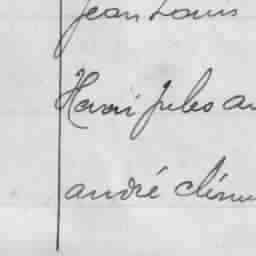 Jean Louis
Henri Jules
andré